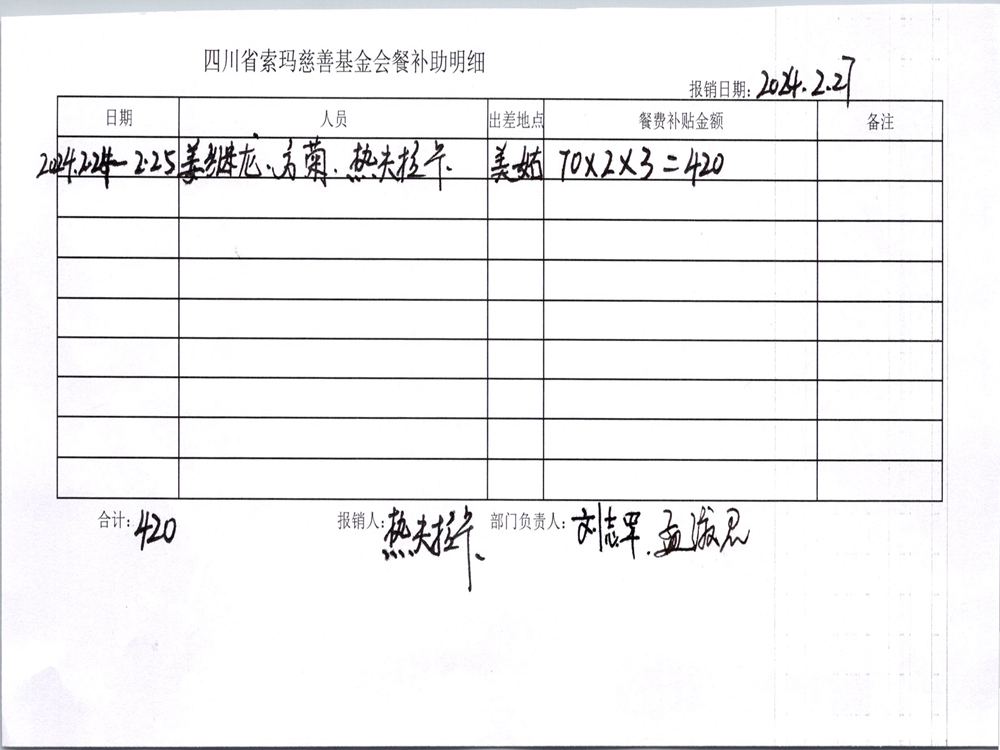 四川省索玛慈善基金会餐补助明细
报销日期：2024.2.27
日期 人员 出差地点 餐费补贴金额 备注
2024.2.24－2.25 姜继龙、方菊、热夫拉卡. 美姑 70×2×3=420
合计：420 报销人：热夫拉卡、 部门负责人：刘志军.孟